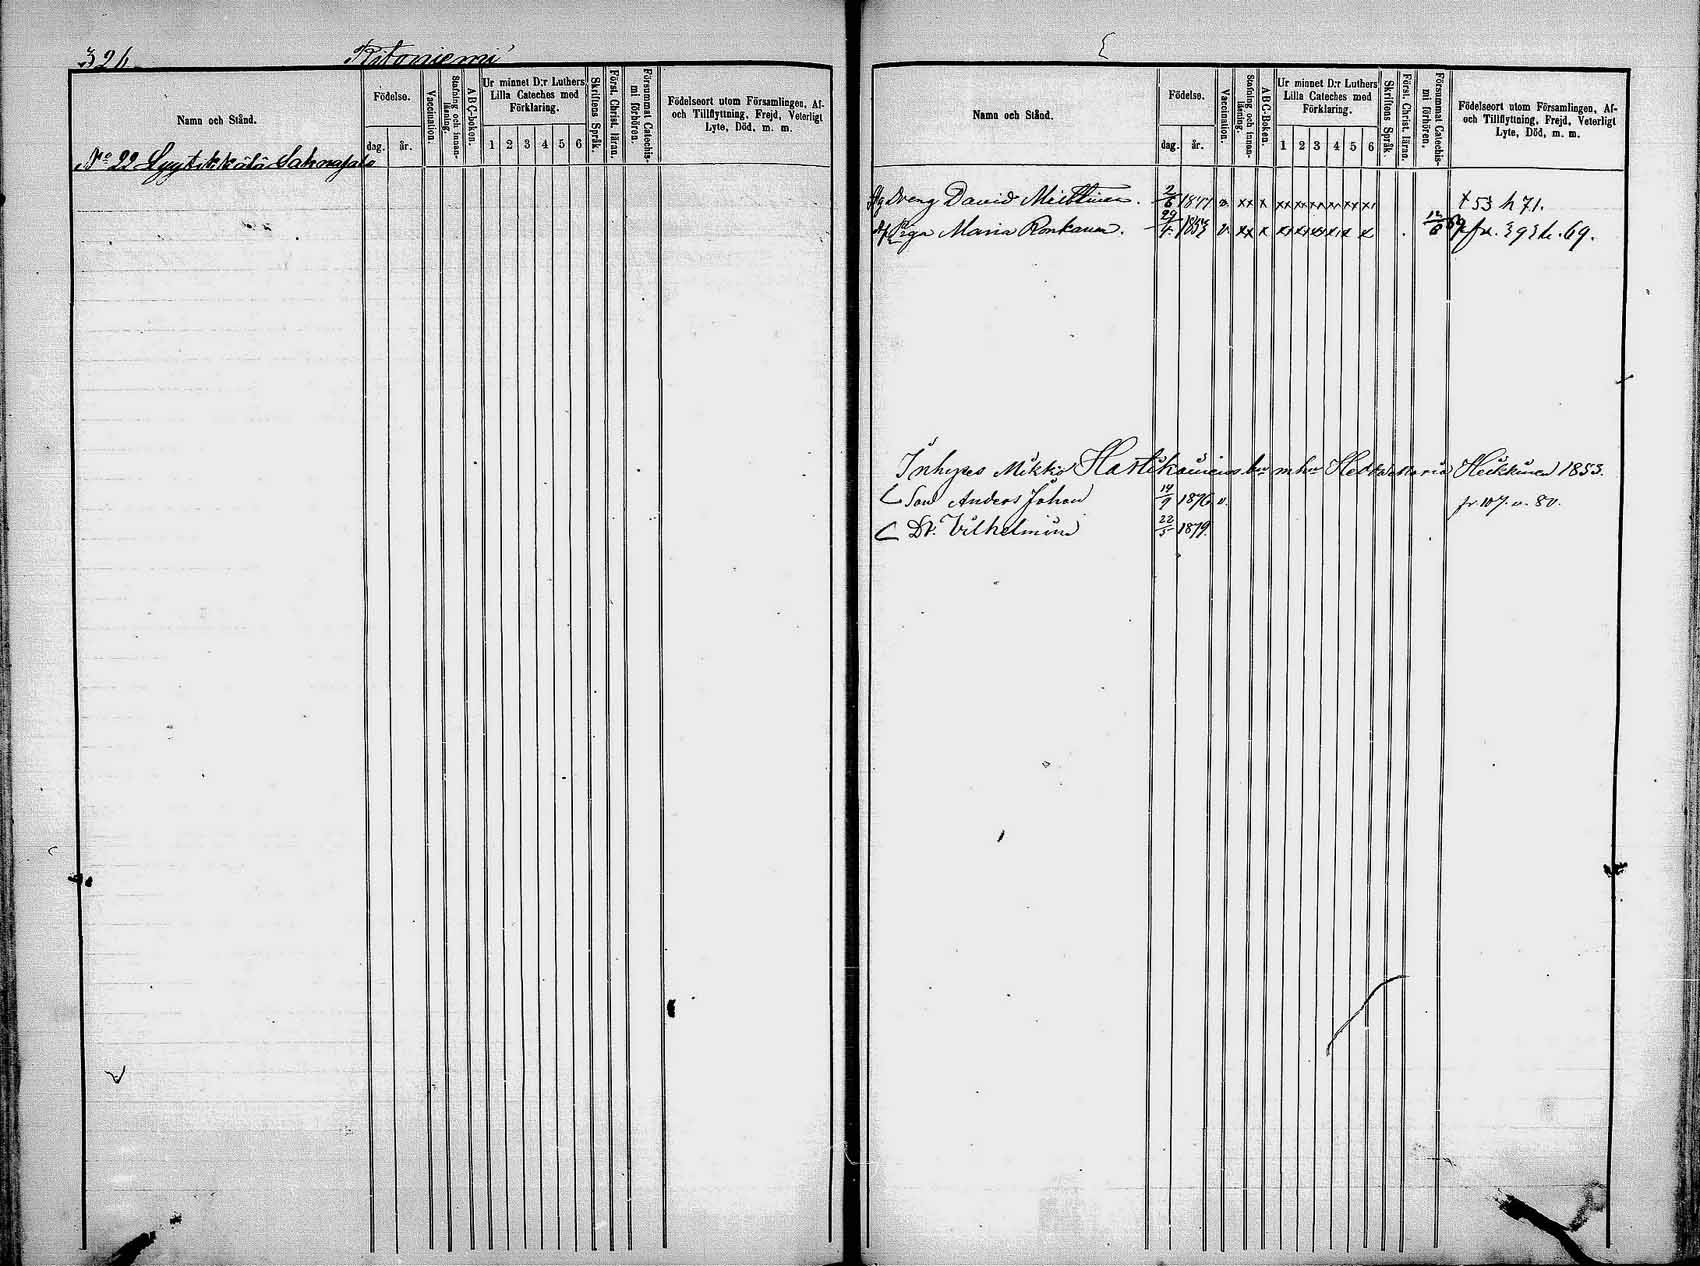 326. Ritoniemi
Namn och Stånd.
Födelse.
dag. år.
Vaccination.
Stafning och innanläsning.
ABC-boken.
Ur minnet D:r Luthers Lilla Cateches med Förklaring.
1 2 3 4 5 6
Skriftens Språk.
Först. Christ. läran.
Försummat Catechismi förhören.
Födelseort utom Församlingen, Af- och Tillflyttning, Frejd, Veterligt Lyte, Död, m. m.
No 22 Lyytikkälä Sahrajalo
Namn och Stånd.
Födelse.
dag. år.
Vaccination.
Stafning och innanläsning.
ABC-Boken.
Ur minnet D:r Luthers Lilla Cateches med Förklaring.
1 2 3 4 5 6
Skriftens Språk.
Först. Christ. läran.
Försummat Catechismi förhören.
Födelseort utom Församlingen, Af- och Tillflyttning, Frejd, Veterligt Lyte, Död, m. m.
Dreng David Miettinen. 2/6 1847 v. xx x xx xx xx xx xx x
Piga Maria Ronkanen. 29/4 1853 v. xx x 12/6 69 fr. 393 h. 69.
Inhyses Mikko Hartikainens Hedda Maria Heikkinen 1853.
Son Anders Johan 14/9 1876 v. fr 107. v. 80.
Dr. Vilhelmina 22/5 1879.